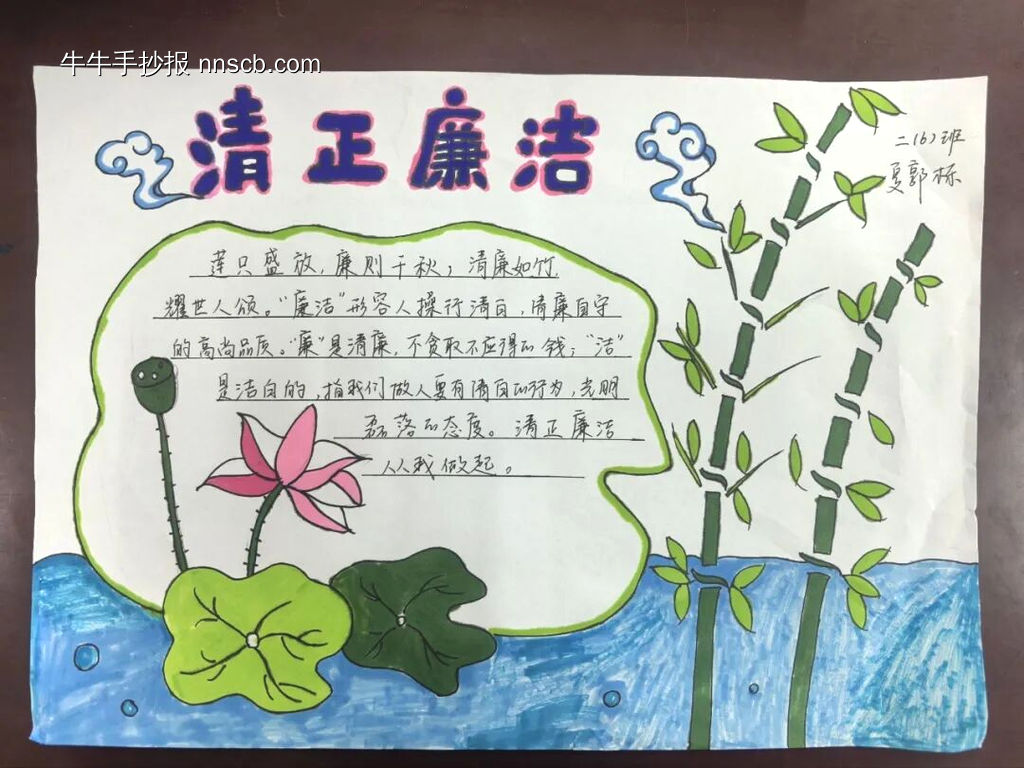 牛牛手抄报 nnscb.com
清正廉洁
二(6)班
夏郭栎
莲只盛放,廉则千秋;清廉如竹
耀世人颂。“廉洁”形容人操行清白,清廉自守
的高尚品质。“廉”是清廉,不贪取不应得的钱;“洁”
是洁白的,指我们做人要有清白的行为,光明
磊落的态度。清正廉洁
从我做起。